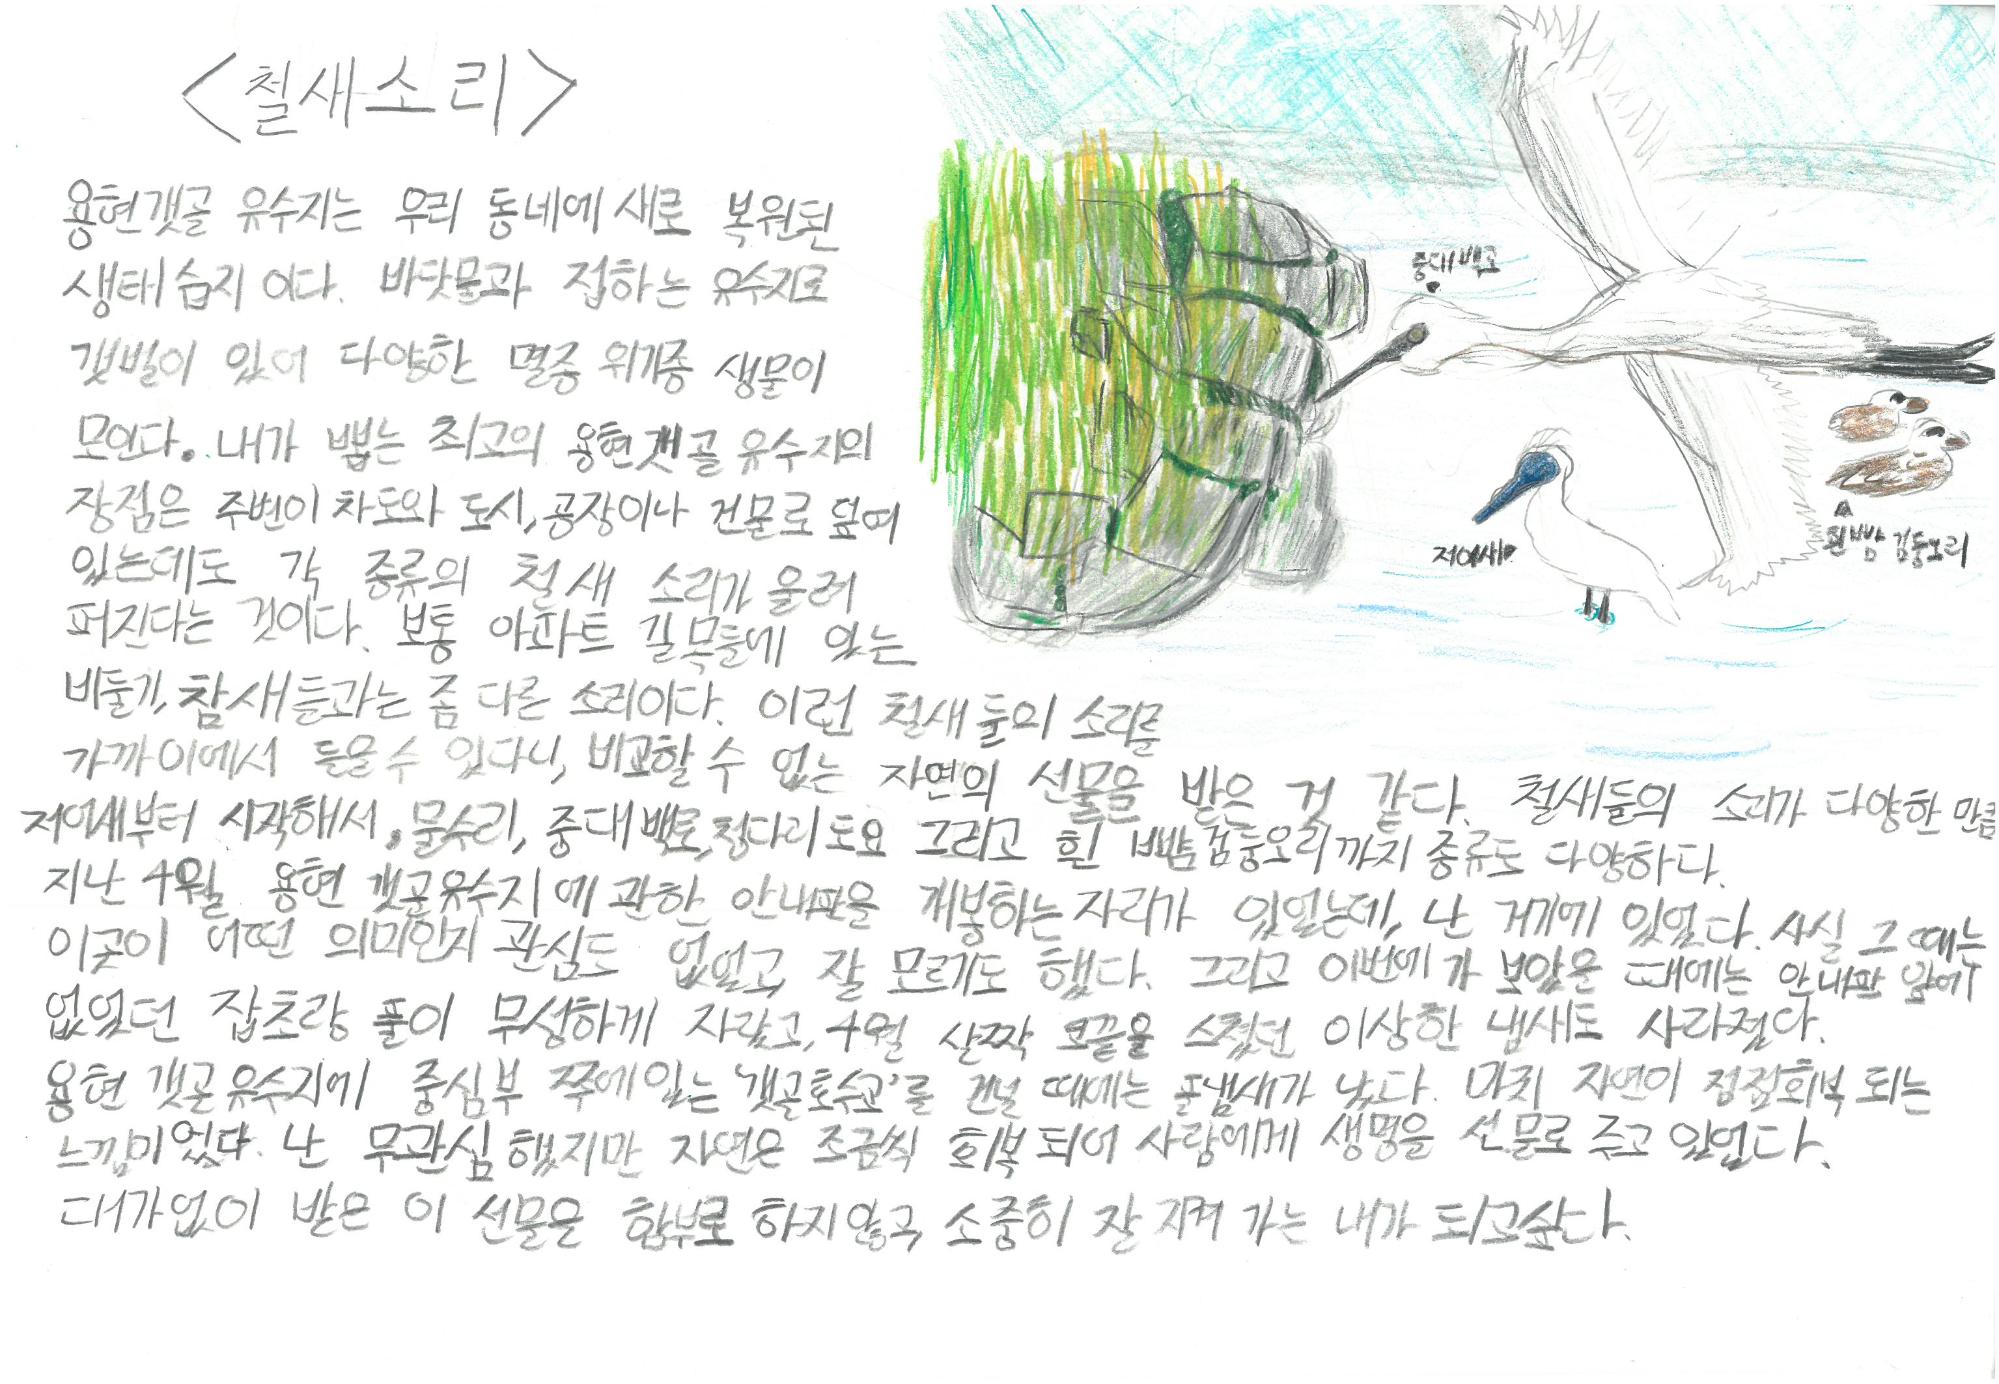 <철새소리>
용현갯골 유수지는 우리 동네에 새로 복원된
생태 습지 이다. 바닷물과 접하는 유수지로
갯벌이 있어 다양한 멸종 위기종 생물이
모인다. 내가 뽑는 최고의 용현갯골 유수지의
장점은 주변이 차도와 도시, 공장이나 건물로 덮여
있는데도 각 종류의 철새 소리가 울려
퍼진다는 것이다. 보통 아파트 길목들에 있는
비둘기, 참새들과는 좀 다른 소리이다. 이런 철새들의 소리를
가까이에서 들을 수 있다니, 비교할 수 없는 자연의 선물을 받은 것 같다. 철새들의 소리가 다양한 만큼
저어새부터 시작해서, 물수리, 중대백로, 청다리도요 그리고 흰 뺨검둥오리까지 종류도 다양하다.
지난 4월 용현 갯골유수지에 관한 안내판을 개봉하는 자리가 있었는데, 난 거기에 있었다. 사실 그 때는
이곳이 어떤 의미인지 관심도 없었고, 잘 모르기도 했다. 그리고 이번에 가 보았을 때에는 안내판 앞에
없었던 잡초랑 풀이 무성하게 자랐고, 4월 살짝 코끝을 스쳤던 이상한 냄새도 사라졌다.
용현 갯골유수지에 중심부 쪽에 있는 '갯골토수교'를 건널 때에는 풀냄새가 났다. 마치 자연이 점점회복 되는
느낌이었다. 난 무관심 했지만 자연은 조금씩 회복 되어 사람에게 생명을 선물로 주고 있었다.
대가없이 받은 이 선물을 함부로 하지 않고, 소중히 잘 지켜 가는 내가 되고싶다.
중대백로
저어새
흰뺨 검둥오리